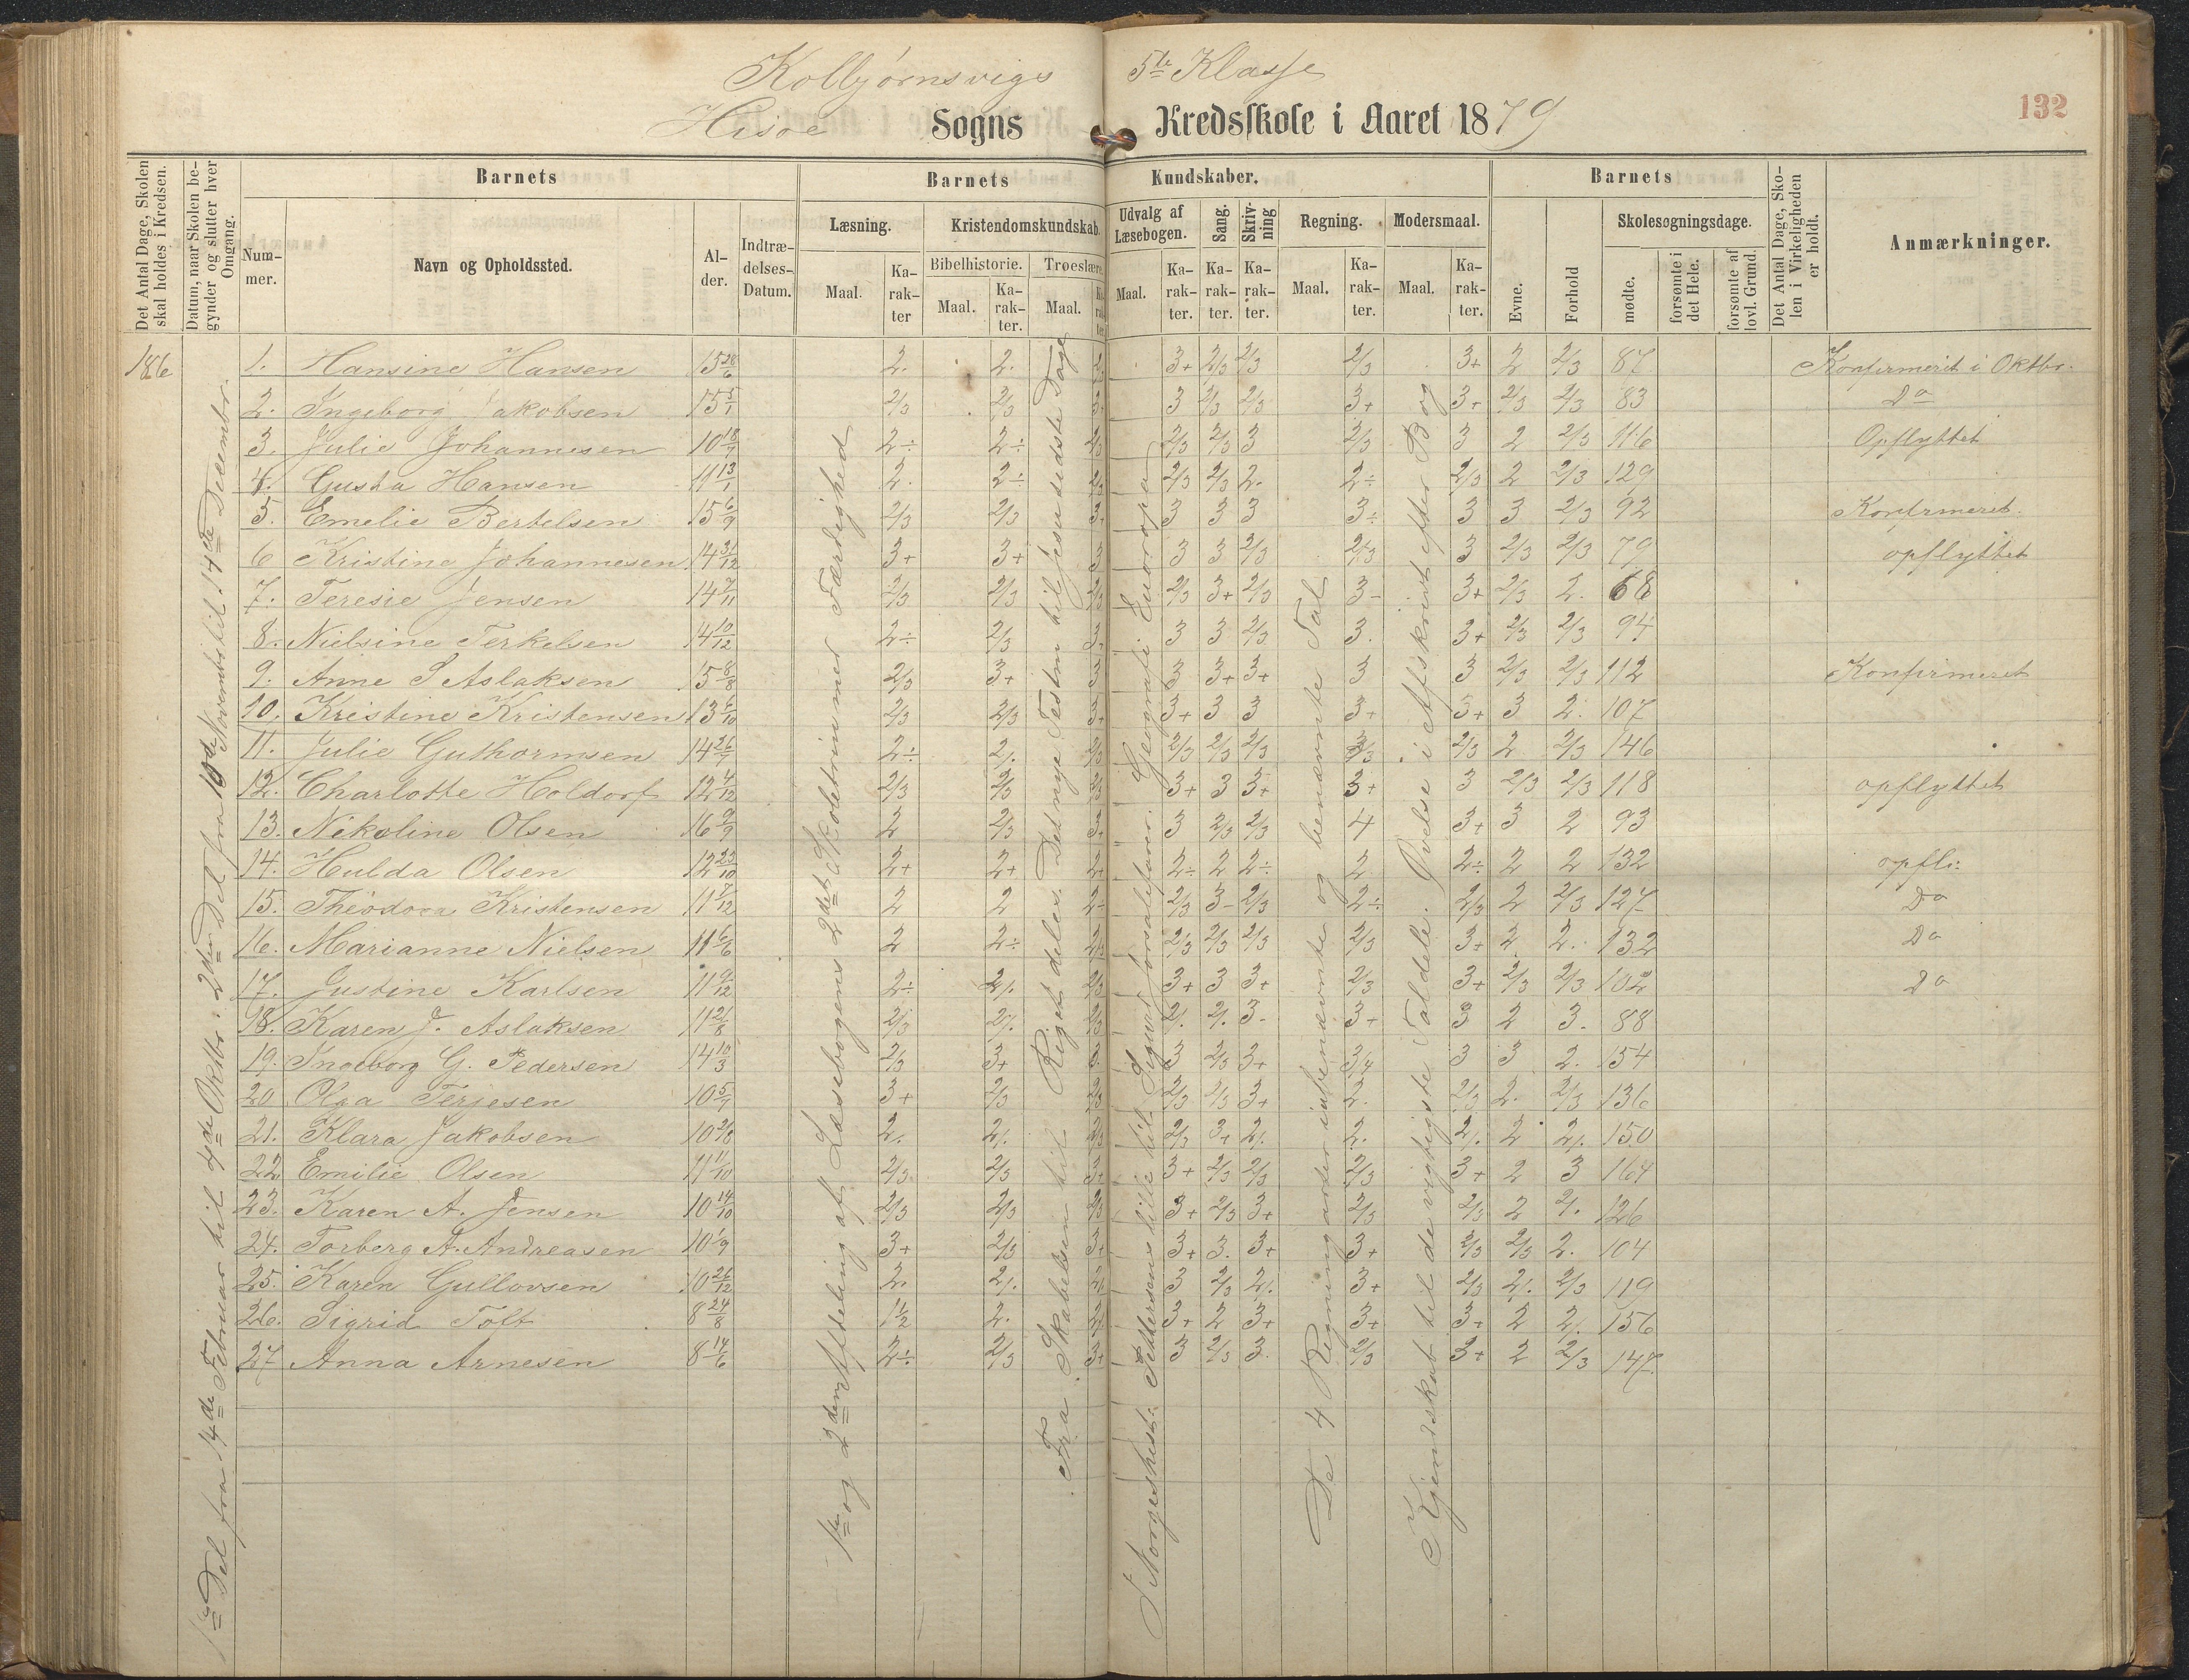 Kolbjørnsvigs 5te Klasse
Hisøe Sogns Kredsskole i Aaret 1879
132
Det Antal Dage, Skolen skal holdes i Kredsen.
Datum, naar Skolen begynder og slutter hver Omgang.
Barnets
Nummer.
Navn og Opholdssted.
Alder.
Indtrædelses-Datum.
Barnets Kundskaber.
Læsning.
Maal.
Karakter
Kristendomskundskab.
Bibelhistorie.
Maal.
Karakter.
Troeslære.
Maal.
Karakter.
Udvalg af Læsebogen.
Maal.
Karakter.
Sang.
Karakter.
Skrivning
Karakter.
Regning.
Maal.
Karakter.
Modersmaal.
Maal.
Karakter.
Barnets
Evne.
Forhold
Skolesøgningsdage.
mødte.
forsømte i det Hele.
forsømte af lovl. Grund.
Det Antal Dage, Skolen i Virkeligheden er holdt.
Anmærkninger.
186
1ste Del fra 14de Februar til 4de Oktbr: 2den Del fra 10de Novembr til 14de Decembr.
1ste og 2den Afdeling af Læsebogens 2det Skoletrin med Færdighed
Fra Skabelsen til Rigets deles. Det nye Testm til Jesu sidste Dage
De 4 Regningsarter i ubenævnte og benævnte Tal
Kjendskab til de vigtigste Taldele. Øvelse i Afskrivt efter Bog
1. Hansine Hansen 15 28/6 2. 2. 3+ 2/3 2/3 2/3 3+ 2 2/3 87 Konfirmeret i Oktbr.
2. Ingeborg Jakobsen 15 5/1 2/3 2/3 3+ 3 2/3 2/3 3+ 3+ 2/3 2/3 83 Do
3. Julie Johannesen 10 18/7 2÷ 2÷ 2/3 2/3 2/3 3 2/3 3 2 2/3 116 Opflyttet
4. Gusta Hansen 11 13/1 2. 2÷ 2/3 2/3 2/3 2. 2÷ 2/3 2 2/3 129
5. Emelie Bertelsen 15 6/9 2/3 2/3 3+ 3 3 3 3÷ 3 3 2/3 92 Konfirmeret.
6 Kristine Johannesen 14 31/12 3+ 3+ 3 3 3 2/3 2/3 3 2/3 2/3 79 opflyttet
7. Teresie Jensen 14 7/11 2/3 2/3 2/3 2/3 3+ 2/3 3- 3+ 2/3 2. 68
8. Nielsine Terkelsen 14 10/12 2÷ 2/3 3. 3 3 2/3 3. 3+ 2/3 2/3 94
9. Anne S Aslaksen 15 8/8 2/3 3+ 3 3 3+ 3+ 3 3 2/3 2/3 112 Konfirmeret
10. Kristine Kristensen 13 6/10 2/3 2/3 3+ 3+ 3 3 3+ 3+ 3 2. 107
11. Julie Guthormsen 14 26/7 2÷ 2/. 2/3 2/3 2/3 2/3 2/3 2/3 2 2/3 146
12. Charlotte Holdorf 12 4/12 2/3 2/3 2/3 3+ 3 3+ 3+ 3 2/3 2/3 118 opflyttet
13. Nikoline Olsen 16 9/9 2 2/3 3+ 3 2/3 2/3 4 3+ 3 2 93
14. Hulda Olsen 12 23/10 2+ 2+ 2+ 2÷ 2 2÷ 2 2÷ 2 2 132 opfl:
15. Theodora Kristensen 11 7/12 2 2 2÷ 2/3 3- 2/3 2÷ 2/3 2 2/3 127 Do
16. Marianne Nielsen 11 6/6 2 2÷ 2/3 2/3 2/3 2/3 2/3 3+ 2 2. 132 Do
17. Justine Karlsen 11 9/12 2÷ 2/. 2/3 3+ 3 3+ 2/3 3+ 2/3 2/3 102 Do
18. Karen J. Aslaksen 11 21/8 2/3 2/. 2/3 2/. 2/. 3- 3+ 3 2 3. 88
19. Ingeborg G. Pedersen 14 10/3 2/3 3+ 3 3 2/3 3+ 3/4 3 3 2. 154
20 Olga Terjesen 10 5/7 3+ 2/3 2/3 2/3 2/3 3+ 2. 2/3 2. 2/3 136
21. Klara Jakobsen 2. 2/. 2/3 2/3 3+ 2/. 2. 2/. 2 2/. 150
22 Emilie Olsen 11 11/10 2/3 2/3 3+ 3+ 2/3 2/3 2/3 3+ 2 3 164
23. Karen A. Jensen 10 14/10 2/3 2/3 2/3 3+ 2/3 3+ 2/3 2/3 2 2/. 126
24. Torberg A. Andreasen 10 1/9 3+ 2/3 3+ 3+ 3. 3+ 3+ 2/3 2/3 2. 104
25. Karen Gullovsen 10 26/12 2. 2/. 2/. 3 2/3 2/. 3+ 2/3 2/. 2/3 119
26. Sigrid Toft 8 24/8 1½ 2. 3+ 2 3+ 3+ 3+ 2 2/. 156
27 Anna Arnesen 8 14/6 2÷ 2/3 3+ 3 2/3 3. 2/3 3+ 2 2/3 147.